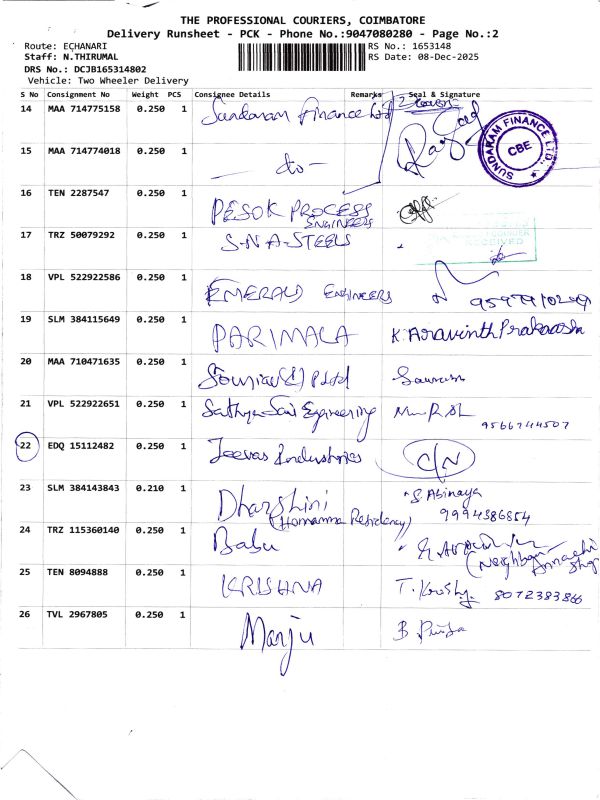 THE PROFESSIONAL COURIERS, COIMBATORE
Delivery Runsheet - PCK - Phone No.:9047080280 - Page No.:2
Route: ECHANARI
RS No.: 1653148
Staff: N.THIRUMAL
RS Date: 08-Dec-2025
DRS No.: DCJB165314802
Vehicle: Two Wheeler Delivery
S No Consignment No Weight PCS Consignee Details Remarks Seal & Signature
14 MAA 714775158 0.250 1 Sundaram Finance Ltd 2
SUNDARAM FINANCE LTD., CBE
15 MAA 714774018 0.250 1 - do -
16 TEN 2287547 0.250 1 PESOK PROCESS
ENGINEERS
17 TRZ 50079292 0.250 1 S-N-A-STEELS
RECEIVED
18 VPL 522922586 0.250 1 EMERALD ENGINEERS
19 SLM 384115649 0.250 1 PARIMALA K. Aravinth Prakaash
20 MAA 710471635 0.250 1
21 VPL 522922651 0.250 1 Sathya Sai Engineering
9566744507
22 EDQ 15112482 0.250 1 Jeevas Industries C/N
23 SLM 384143843 0.210 1 Dharshini S. Abinaya
(Homamma Residency) 9994386854
24 TRZ 115360140 0.250 1 Babu
(Neighbour
25 TEN 8094888 0.250 1 KRISHNA 8072383866
26 TVL 2967805 0.250 1 Manju